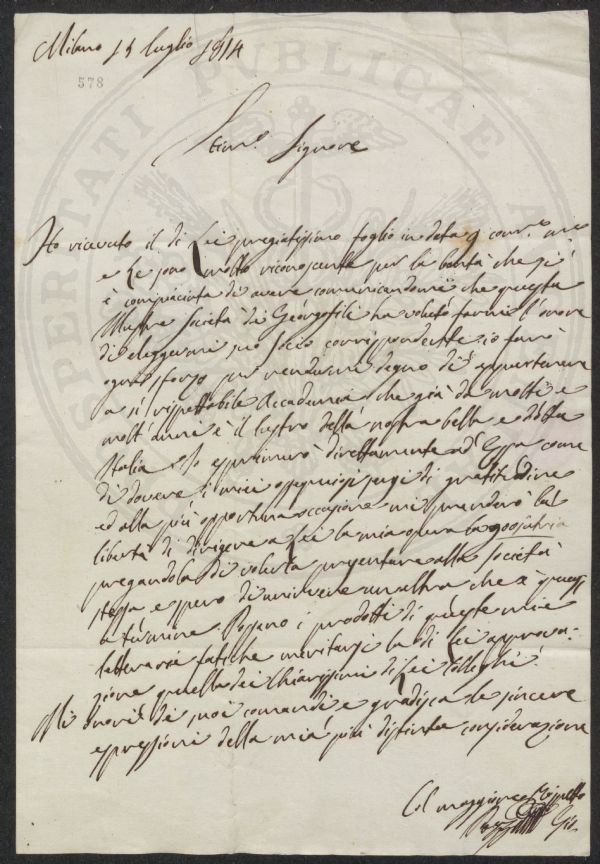 Milano 15 luglio 1814
578
PROSPERITATI PUBLICAE A
Stim.º Signore
Ho ricevuto il di Lei pregiatissimo foglio in data 9 corr.e
e Le sono molto riconoscente per la bontà che si
è compiaciuta di avere comunicandomi che questa
Illustre Società dei Georgofili ha voluto farmi l'onore
di eleggermi suo socio corrispondente io farò
ogni sforzo per rendermi degno di appartenere
a sì rispettabile Accademia che già da molti e
molt'anni è il lustro della nostra bella e dotta
Italia. Io esprimerò direttamente ad Essa come
di dovere i miei ossequiosi sensi di gratitudine
ed alla più opportuna occasione mi prenderò la
libertà di dirigere a Lei la mia opera
pregandola di volerla presentare alla Società
stessa e spero di unirvene un'altra che è quasi
a termine. Possano i prodotti di queste mie
letterarie fatiche meritarsi la di Lei approva-
zione quella dei chiarissimi di Lei Colleghi.
Mi onori de suoi comandi e gradisca le sincere
espressioni della mia più distinta considerazione
Col maggiore rispetto
Gio